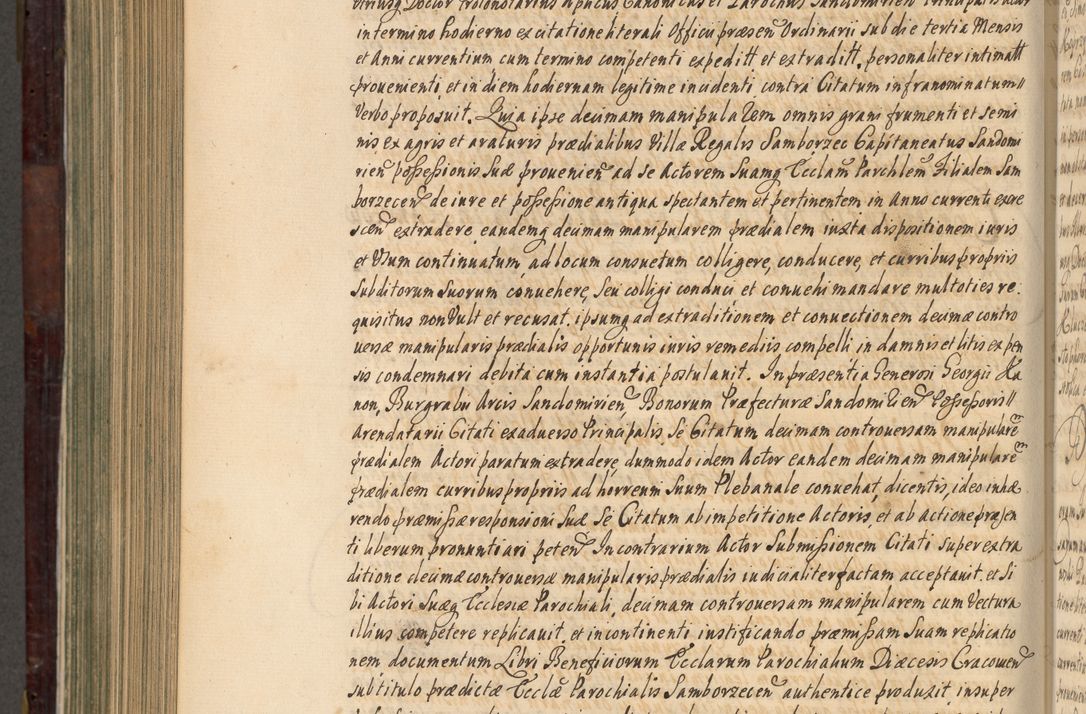 in termino hodierno ex citatione literali Officii præsen Ordinarii sub die tertia Mensis
et Anni currentium cum termino competenti expeditt et extraditt, personaliter intimatt
provenienti, et in diem hodiernam legitime incidenti contra Citatum infranominatum
Verbo proposuit. Quia ipse decimam manipulalem omnis grani frumenti et semi
nis ex agris et araturis prædialibus Villæ Regalis Samborzec Capitaneatus Sandomi
rien possessionis Suæ provenien ad se Actorem Suamq Ecclam Parchlem Filialem Sam
borzecen de iure et possessione antiqua spectantem et pertinentem in Anno currenti excre
scen extradere, eandemq decimam manipularem prædialem iuxta dispositionem iuris
et Usum continuatum ad locum consuetum colligere, conducere, et curribus propriis
Subditorum Suorum convehere, seu colligi conduci et convehi mandare multoties re.
quisitus non Vult et recusat, ipsumq ad extraditionem et convectionem decimæ contro
versæ manipularis prædialis opportunis iuris remediis compelli, in damnis et litis expen
sis condemnari debita cum instantia postulavit. In præsentia Generosi Georgii Ha
non, Burgrabii Arcis Sandomirien, Bonorum Præfecturæ Sandomirien Possessoris
Arendatarii Citati ex adverso Principalis. Se Citatum decimam controversam manipularem
prædialem Actori paratum extradere, dummodo idem Actor eandem decimam manipularem
prædialem curribus propriis ad horreum Suum Plebanale convehat, dicentis, ideo inhæ
rendo præmissæ responsioni Suæ Se Citatum ab impetitione Actoris, et ab actione præsen
ti liberum pronuntiari peten. In contrarium Actor Submissionem Citati super extra
ditione decimæ controversæ manipularis prædialis iudicialiter factam acceptavit, et Si
bi Actori Suæq Ecclesiæ Parochiali, decimam controversam manipularem cum Vectura
illius competere replicavit, et in continenti iustificando præmissam Suam replicatio
nem documentum Libri Beneficiorum Ecclarum Parochialium Diæcesis Cracovien
sub titulo prædictæ Ecclæ Parochialis Samborzecen authentice produxit, insuper